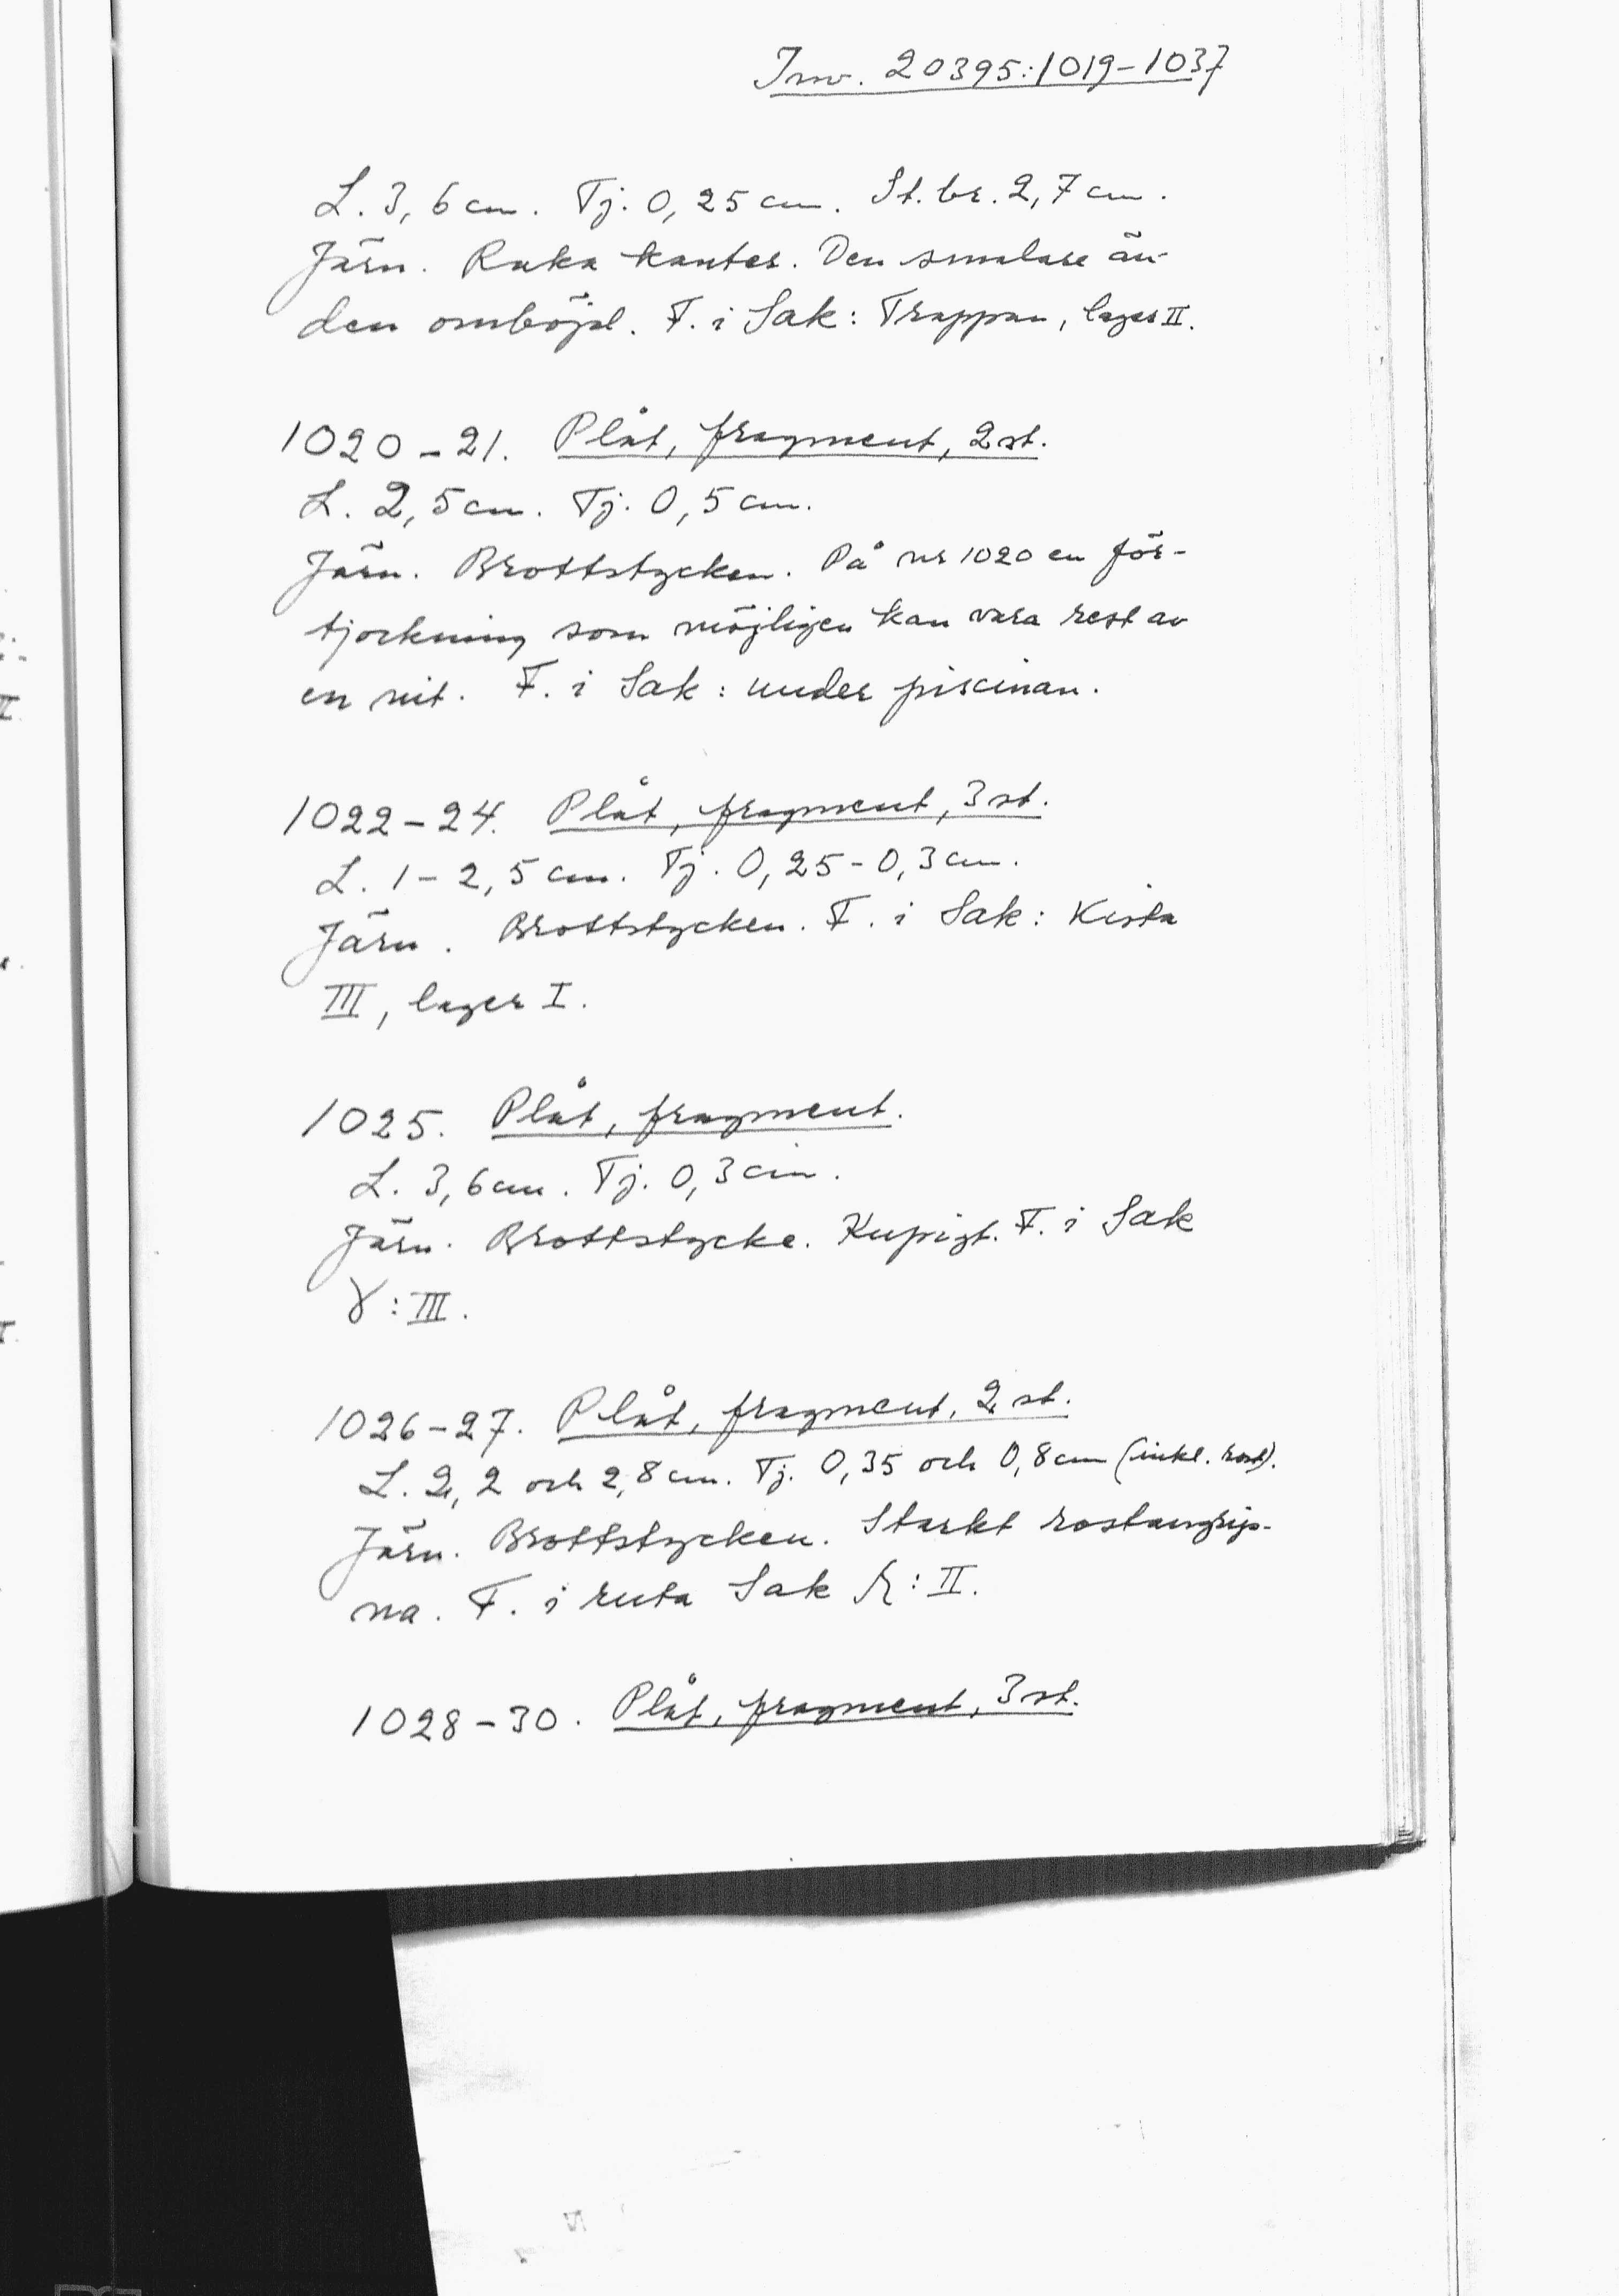 Inv. 20395:1019-1037
L. 3,6 cm. Tj. 0,25 cm. St. br. 2,7 cm.
Järn. Raka kanter. Den smalare än-
den omböjd. F. i Sak: Trappan, lager II.
1020-21. Plåt, fragment, 2 st.
L. 2,5 cm. Tj. 0,5 cm.
Järn. Brottstycken. På nr 1020 en för-
tjockning som möjligen kan vara rest av
en nit. F. i Sak: under piscinan.
1022-24. Plåt, fragment, 3 st.
L. 1-2,5 cm. Tj. 0,25-0,3 cm.
Järn. Brottstycken. F. i Sak: Kista
III, lager I.
1025. Plåt, fragment.
L. 3,6 cm. Tj. 0,3 cm.
Järn. Brottstycke. Kupigt. F. i Sak
γ: III.
1026-27. Plåt, fragment, 2 st.
L. 2,2 och 2,8 cm. Tj. 0,35 och 0,8 cm (inkl. rost).
Järn. Brottstycken. Starkt rostangrip-
na. F. i ruta Sak : II.
1028-30. Plåt, fragment, 3 st.